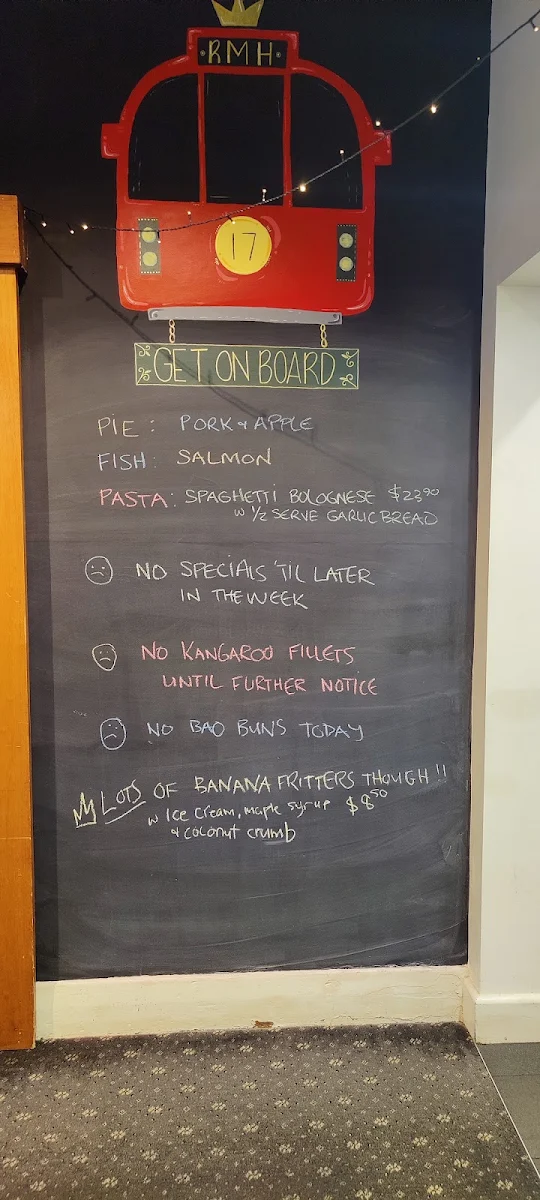 RMH
17
GET ON BOARD
PIE: PORK & APPLE
FISH: SALMON
PASTA: SPAGHETTI BOLOGNESE $23⁹⁰
W 1/2 SERVE GARLIC BREAD
NO SPECIALS 'TIL LATER
IN THE WEEK
NO KANGAROO FILLETS
UNTIL FURTHER NOTICE
NO BAO BUNS TODAY
LOTS OF BANANA FRITTERS THOUGH!!
w Ice Cream, maple syrup $8⁵⁰
& coconut crumb